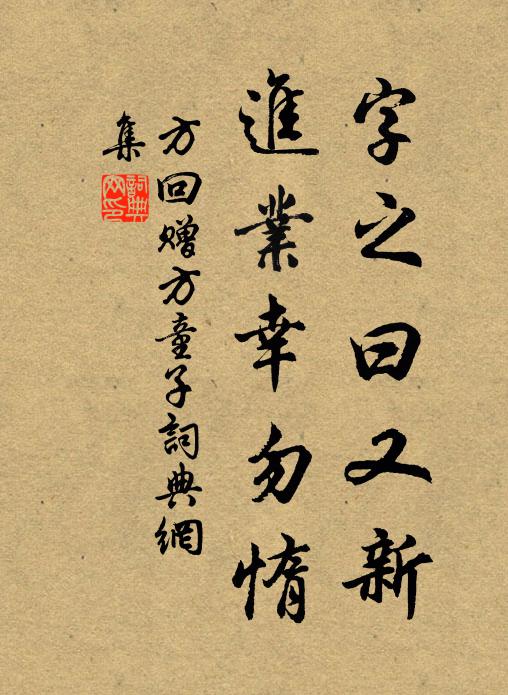 字之曰又新
進業幸勿惰
方回贈方童子詞典網
集
詞典
网印